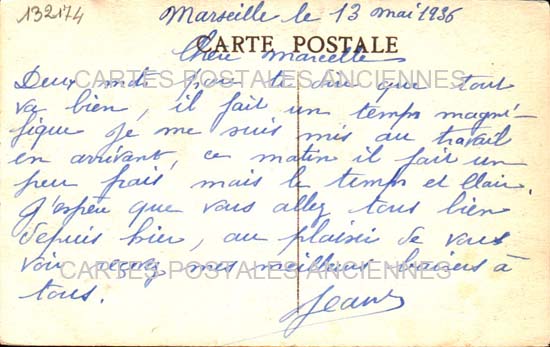 132174
Marseille le 13 mai 1936
CARTE POSTALE
Chère Marcelle
CARTES POSTALES ANCIENNES
Deux mots pour te dire que tout
va bien, il fait un temps magni-
fique je me suis mis au travail
en arrivant, ce matin il fait un
peu frais mais le temps et clair.
J'espère que vous allez tous bien
depuis hier, au plaisir de vous
voir recevez mes meilleurs baisers à
CARTES POSTALES ANCIENNES
tous.
Jean